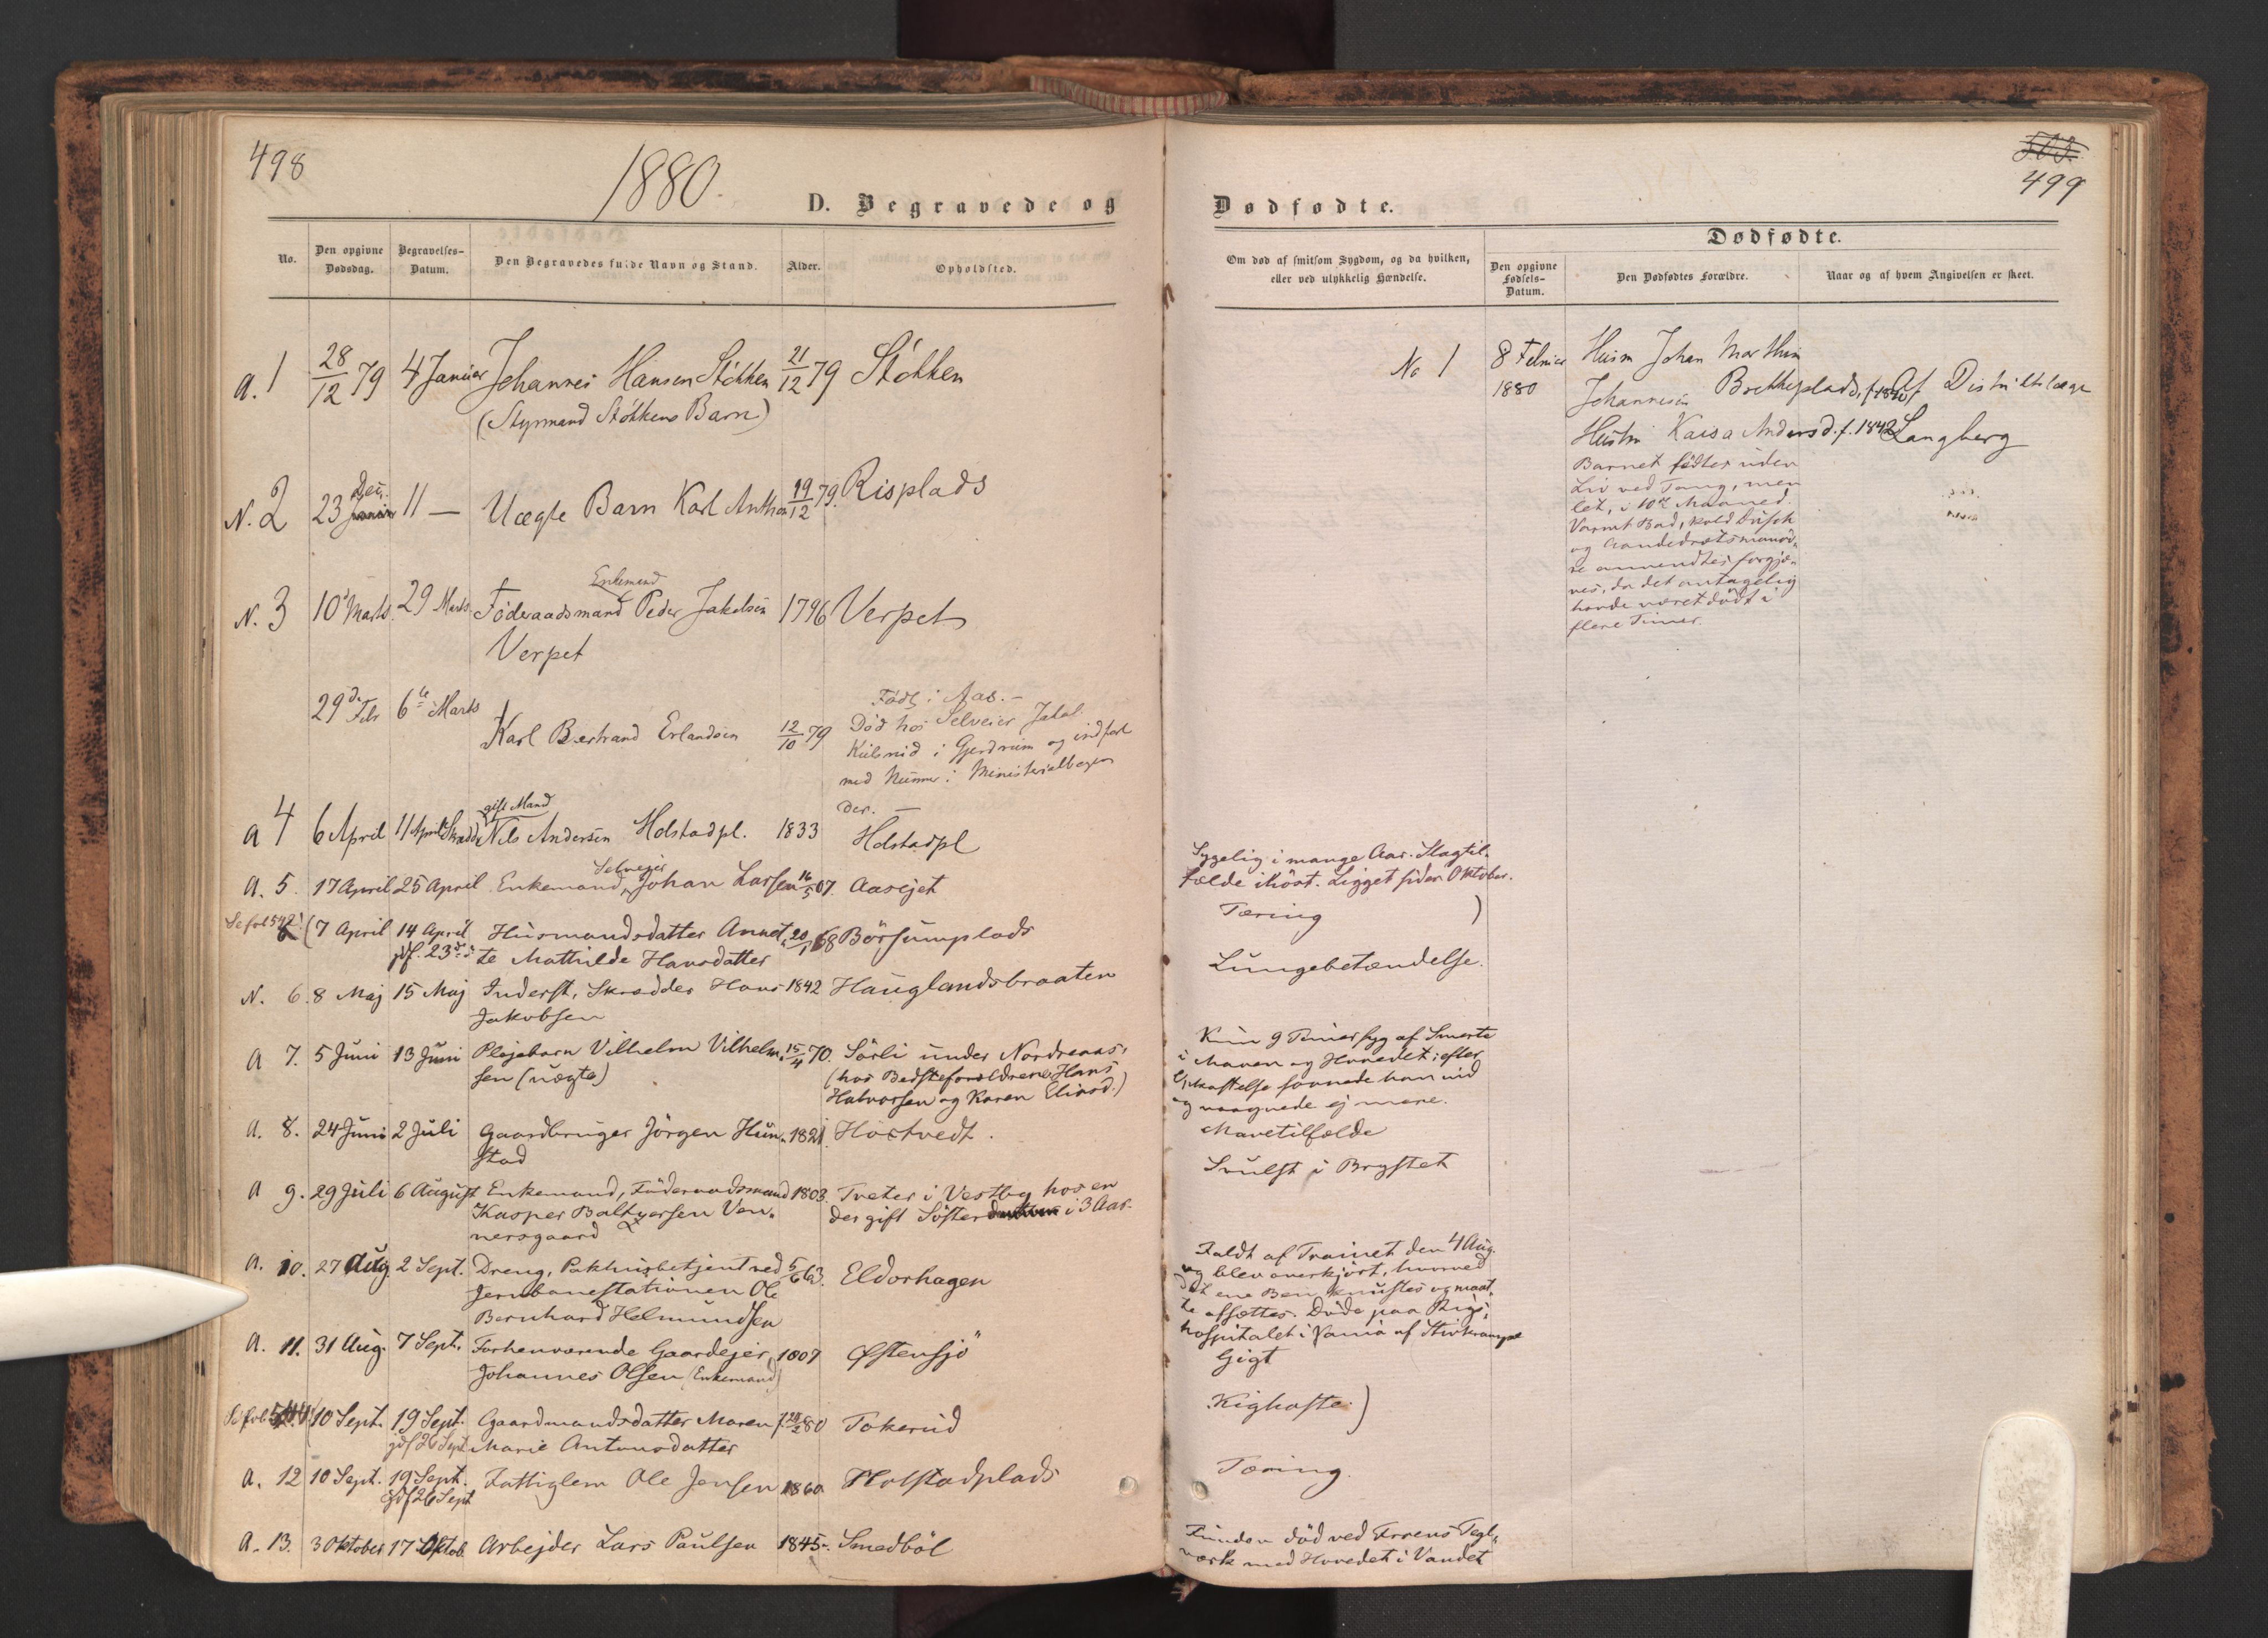 498
1880.
D. Begravede og
No.
Den opgivne Dødsdag.
Begravelses-Datum.
Den Begravedes fulde Navn og Stand.
Alder.
Opholdsted.
a. 1 28/12 79 4 Januar Johannes Hansen Støkken 21/12 79 Støkken
(Styrmand Støkkens Barn)
N. 2 23 Dec. 11 — Uægte Barn Karl Anthon 19/12 79. Risplads
N. 3 10 Marts 29 Marts Føderaadsmand Enkemand Peder Jakobsen 1796 Verpet
Verpet
29de Febr 6te Marts Karl Bertrand Erlandsen 12/10 79 Født i Aas. –
Død hos Selveier Jakob
i Gjerdrum og indført
med Nummer i Ministerialbogen
der. —
a 4 6 April 11 April Skrædder gift Mand Nils Andersen Holstadpl. 1833 Holstadpl
a. 5. 17 April 25 April Enkemand, Selveier Johan Larsen 16/5 07. Aasejet
Se fol 542! (7 April 14 April Husmandsdatter Annet- 20/1 68 Börsumplads
jdf. 23de te Mathilde Hansdatter
N. 6. 8 Maj 15 Maj Inderst, Skrædder Hans 1842 Hauglandsbraaten
Jakobsen
a 7. 5 Juni 13 Juni Plejebarn Vilhelm Vilhelm- 15/4 70. Sörli under Nordreaas,
sen (uægte) (hos Bedsteforældrene Hans
Halvorsen og Karen Eliasd.)
a. 8. 24 Juni 2 Juli Gaardbruger Jörgen Hun- 1821 Hostvedt.
stad
a 9. 29 Juli 6 August Enkemand, Föderaadsmand 1803. Treter i Vestby hos en
Kasper Baltzersen Ven- der gift Söster i 3 Aar.
nersgaard
a. 10. 27 Aug. 2 Sept. Dreng, Pakhusbetjent ved 5/6 63. Eldorhagen
Jernbanestationen Ole
Bernhard Helmundsen
a. 11. 31 Aug. 7 Sept. Forhenværende Gaardejer 1807 Østensjö
Johannes Olsen (Enkemand)
Se fol 544! (10 Sept. 19 Sept. Gaardmandsdatter Maren f. 80 Tokerud
jdf 26 Sept. Marie Antonsdatter
a. 12 10 Sept. 19 Sept. Fattiglem Ole Jensen 1860 Holstadplads
jdf 26 Sept
a. 13. 3 Oktober 17 Oktob. Arbejder Lars Paulsen 1845. Smedböl
503.
499
Dødfødte.
Om død af smitsom Sygdom, og da hvilken,
eller ved ulykkelig Hændelse.
Dødfødte.
Den opgivne Fødsels-Datum.
Den Dødfødtes Forældre.
Naar og af hvem Angivelsen er skeet.
No 1 8 Februar 1880 Husm Johan Marthin
Johannesen Brekkeplads, f. 1840 Af Distriktslæge
Hustru Kaisa Andersd. f. 1842 Langberg
Barnet födtes uden
Liv ved Tang, men
let, i 10de Maaned.
Varmt Bad, kold Dusch
og Aandedrætsmanöv-
re anvendtes forgjæ-
ves, da det antagelig
havde været dödt i
flere Timer.
Sygelig i mange Aar. Slagtil-
fælde i Höst. Ligget siden Oktober.
Tæring )
Lungebetændelse.
Kun 9 Timer syg af Smerte
i Maven og Hovedet; efter
Opkastelse sovnede han ind
og vaagnede ej mere.
Mavetilfælde
Svulst i Brystet
Faldt af Trainet den 4 Aug.
og blev overkjört, hvorved
det ene Ben knustes og maat-
te afsættes. Döde paa Rigs-
hospitalet i Xania af Stivkrampe
Gigt
Kighoste. )
Tæring.
Funden död ved Froens Tegl-
værk med Hovedet i Vandet